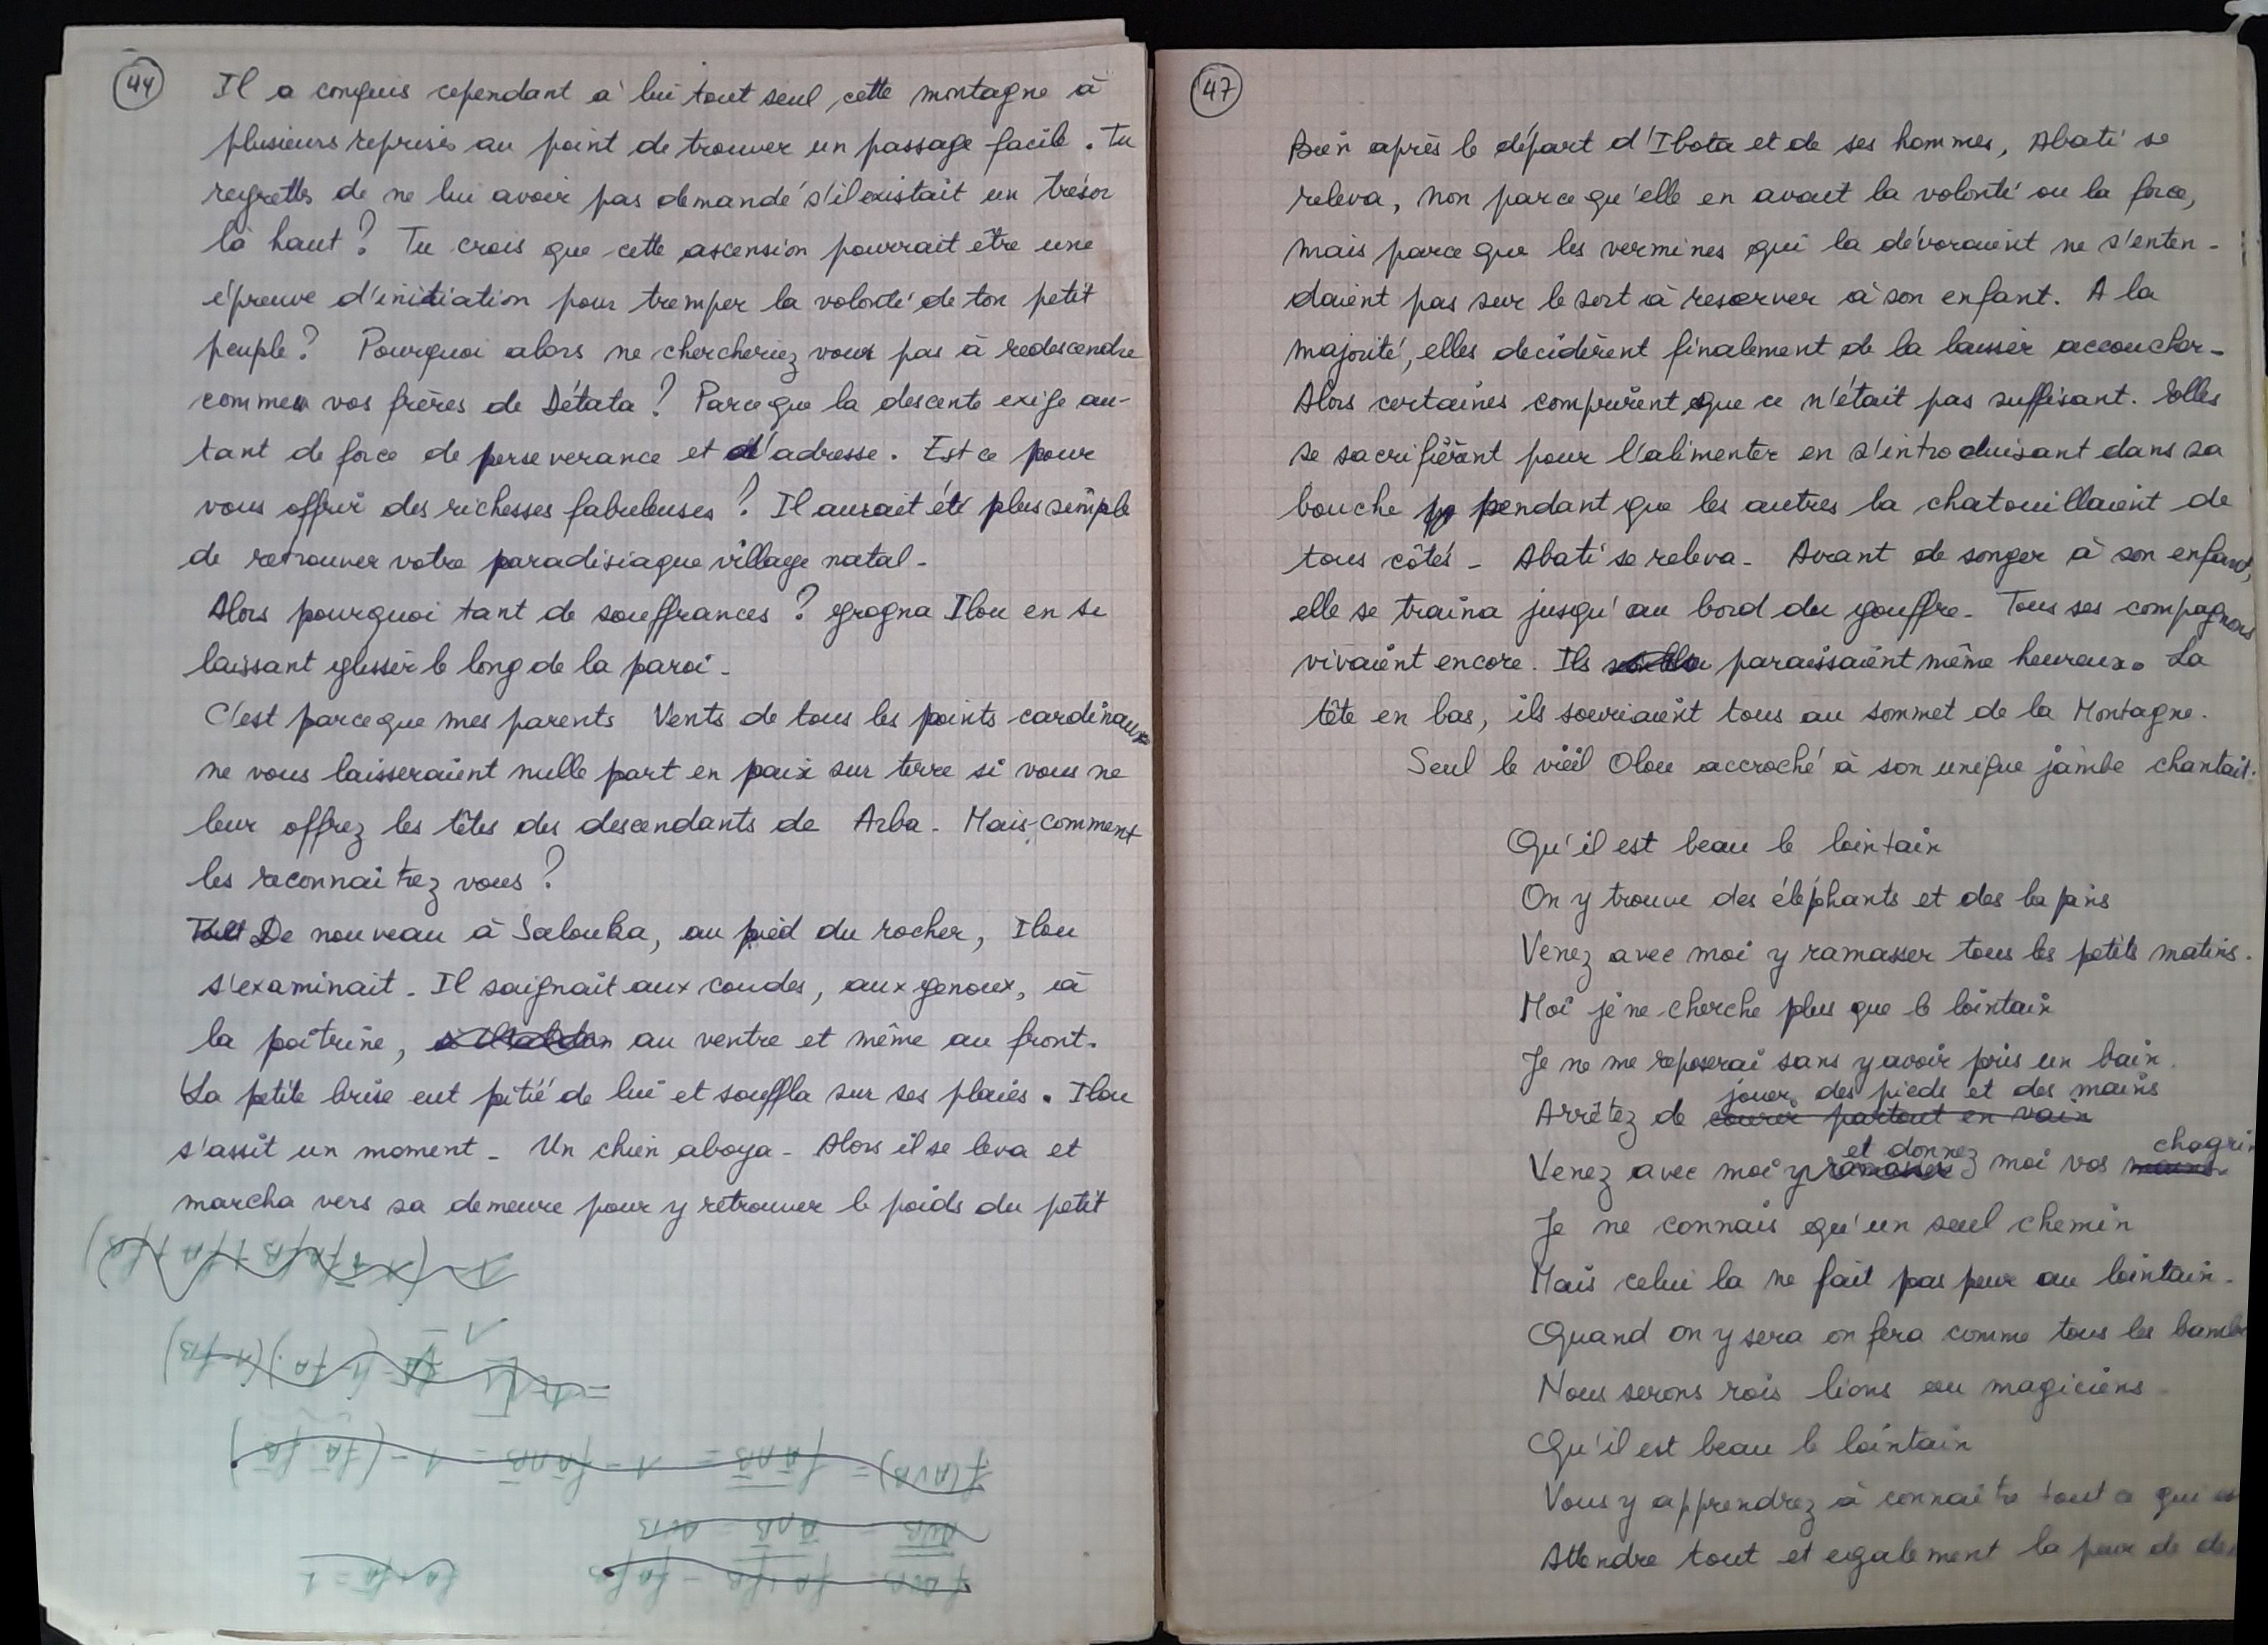 44
Il a conquis cependant à lui tout seul cette montagne à
plusieurs reprises au point de trouver un passage facile. Tu
regrettes de ne lui avoir pas demandé s'il existait un trésor
là haut ? Tu crois que cette ascension pourrait être une
épreuve d'initiation pour tremper la volonté de ton petit
peuple ? Pourquoi alors ne chercheriez vous pas à redescendre
comme vos frères de Détata ? Parce que la descente exige au-
tant de force de perseverance et d'adresse. Est ce pour
vous offrir des richesses fabuleuses ? Il aurait été plus simple
de retrouver votre paradisiaque village natal.
Alors pourquoi tant de souffrances ? grogna Ilou en se
laissant glisser le long de la paroi.
C'est parceque mes parents Vents de tous les points cardinaux
ne vous laisseraient nulle part en paix sur terre si vous ne
leur offrez les têtes des descendants de Arba. Mais comment
les reconnaitrez vous ?
De nouveau à Salouka, au pied du rocher, Ilou
s'examinait. Il saignait aux coudes, aux genoux, à
la poitrine, au ventre et même au front.
La petite brise eut pitié de lui et souffla sur ses plaies. Ilou
s'assit un moment. Un chien aboya. Alors il se leva et
marcha vers sa demeure pour y retrouver le poids du petit
47
Bien après le départ d'Ibota et de ses hommes, Abati se
releva, non parce qu'elle en avait la volonté ou la force,
mais parce que les vermines qui la dévoraient ne s'enten-
daient pas sur le sort à reserver à son enfant. A la
majorité, elles decidèrent finalement de la laisser accoucher.
Alors certaines comprirent que ce n'était pas suffisant. Elles
se sacrifièrent pour l'alimenter en s'introduisant dans sa
bouche pendant que les autres la chatouillaient de
tous côtés. Abati se releva. Avant de songer à son enfant,
elle se traina jusqu'au bord du gouffre. Tous ses compagnons
vivaient encore. Ils paraissaient même heureux. La
tête en bas, ils souriaient tous au sommet de la Montagne.
Seul le vieil Olou accroché à son unique jambe chantait:
Qu'il est beau le lointain
On y trouve des éléphants et des lapins
Venez avec moi y ramasser tous les petits matins.
Moi je ne cherche plus que le lointain
Je ne me reposerai sans y avoir pris un bain.
jouer des pieds et des mains
Arrêtez de courir partout en vain
et donnez chagrin
Venez avec moi y ramasser moi vos
Je ne connais qu'un seul chemin
Mais celui la ne fait pas peur au lointain.
Quand on y sera on fera comme tous les
Nous serons rois lions ou magiciens
Qu'il est beau le lointain
Vous y apprendrez à connaitre tout ce qui
Attendre tout et egalement la peur de